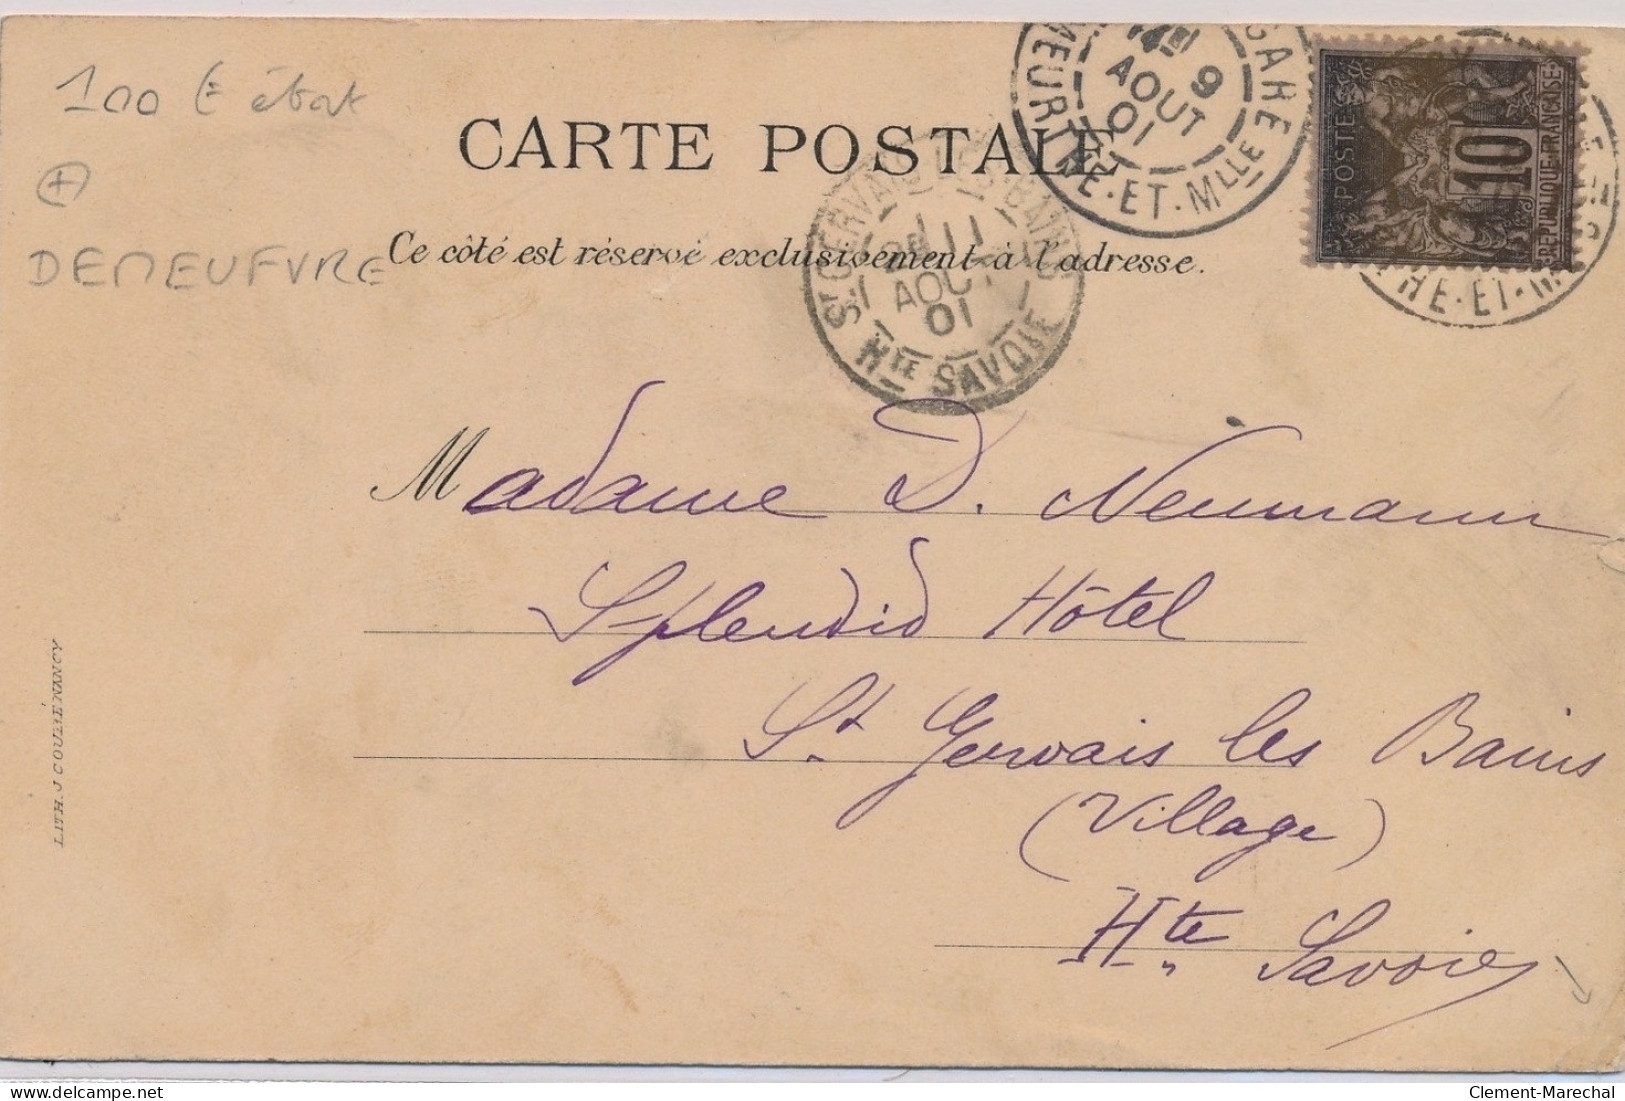 100 € état
+
DENEUFVRE
CARTE POSTALE
Ce côté est réservé exclusivement à l'adresse.
GARE
9
AOUT
01
MEURTHE·ET·MLLE
POSTES
10
REPUBLIQUE·FRANÇAISE
THE·ET·M
ST GERVAIS-LES-BAINS
11
AOUT
01
HTE SAVOIE
Madame D. Neumann
Splendid Hôtel
St Gervais les Bains
(Village)
Hte Savoie
LITH. J COURBÉ NANCY
Clement-Marechal